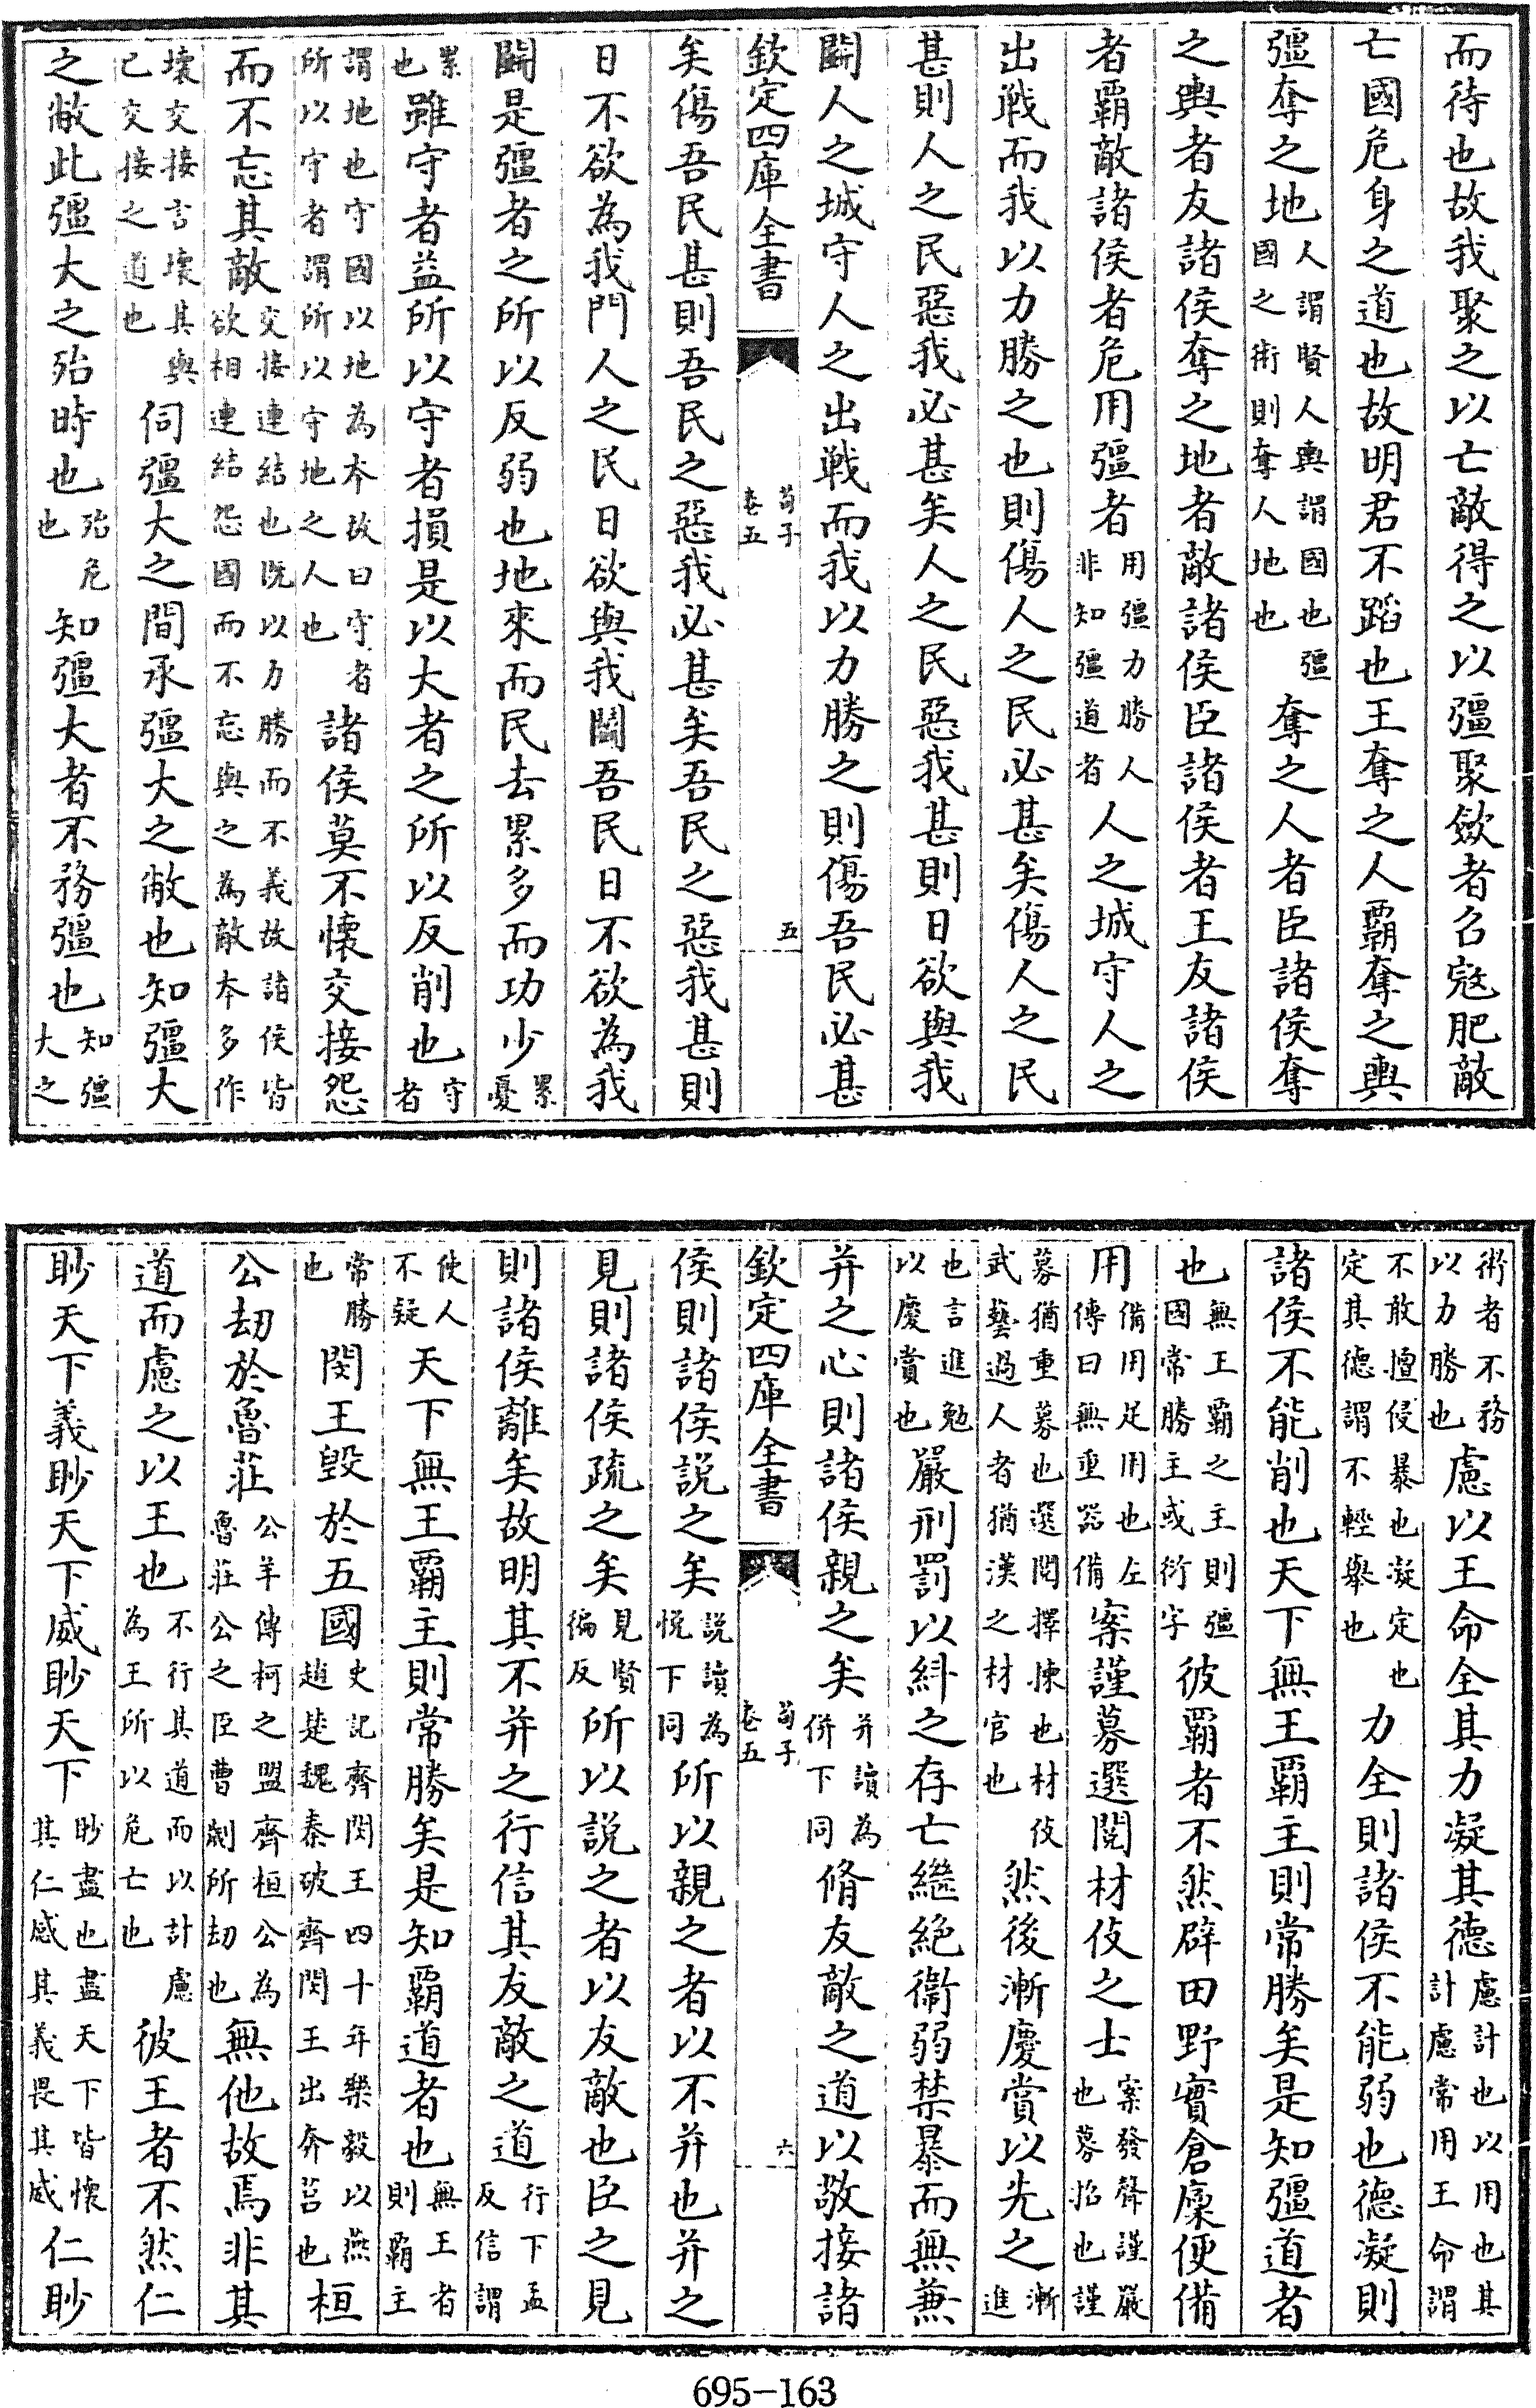 而待也故我聚之以亡敵得之以彊聚斂者召寇肥敵
亡國危身之道也故明君不蹈也王奪之人霸奪之與
彊奪之地人謂賢人與謂國也彊國之術則奪人地也奪之人者臣諸侯奪
之與者友諸侯奪之地者敵諸侯臣諸侯者王友諸侯
者霸敵諸侯者危用彊者用彊力勝人非知彊道者人之城守人之
出戰而我以力勝之也則傷人之民必甚矣傷人之民
甚則人之民惡我必甚矣人之民惡我甚則日欲與我
鬭人之城守人之出戰而我以力勝之則傷吾民必甚
欽定四庫全書 荀子 卷五 五
矣傷吾民甚則吾民之惡我必甚矣吾民之惡我甚則
日不欲為我鬭人之民日欲與我鬭吾民日不欲為我
鬭是彊者之所以反弱也地來而民去累多而功少累憂
累也雖守者益所以守者損是以大者之所以反削也守者
謂地也守國以地為本故曰守者所以守者謂所以守地之人也諸侯莫不懷交接怨
而不忘其敵交接連結也既以力勝而不義故諸侯皆欲相連結怨國而不忘與之為敵本多作
壞交接言壞其與已交接之道也伺彊大之間承彊大之敝也知彊大
之敝此彊大之殆時也殆危也知彊大者不務彊也知彊大之
術者不務以力勝也慮以王命全其力凝其德慮計也以用也其計慮常用王命謂
不敢擅侵暴也凝定也定其德謂不輕舉也力全則諸侯不能弱也德凝則
諸侯不能削也天下無王霸主則常勝矣是知彊道者
也無王霸之主則彊國常勝主或衍字彼霸者不然辟田野實倉廩便備
用備用足用也左傳曰無重器備案謹募選閱材伎之士案發聲謹嚴也募招也謹
募猶重募也選閱擇揀也材伎武藝過人者猶漢之材官也然後漸慶賞以先之漸進
也言進勉以慶賞也嚴刑罰以糾之存亡繼絕衛弱禁暴而無兼
并之心則諸侯親之矣并讀為併下同脩友敵之道以敬接諸
欽定四庫全書 荀子 卷五 六
侯則諸侯說之矣說讀為悅下同所以親之者以不并也并之
見則諸侯疏之矣見賢徧反所以說之者以友敵也臣之見
則諸侯離矣故明其不并之行信其友敵之道行下孟反信謂
使人不疑天下無王霸主則常勝矣是知霸道者也無王者則霸主
常勝也閔王毀於五國史記齊閔王四十年樂毅以燕趙楚魏秦破齊閔王出奔莒也桓
公劫於魯莊公羊傳柯之盟齊桓公為魯莊公之臣曹劌所劫也無他故焉非其
道而慮之以王也不行其道而以計慮為王所以危亡也彼王者不然仁
眇天下義眇天下威眇天下眇盡也盡天下皆懷其仁感其義畏其威仁眇
695-163